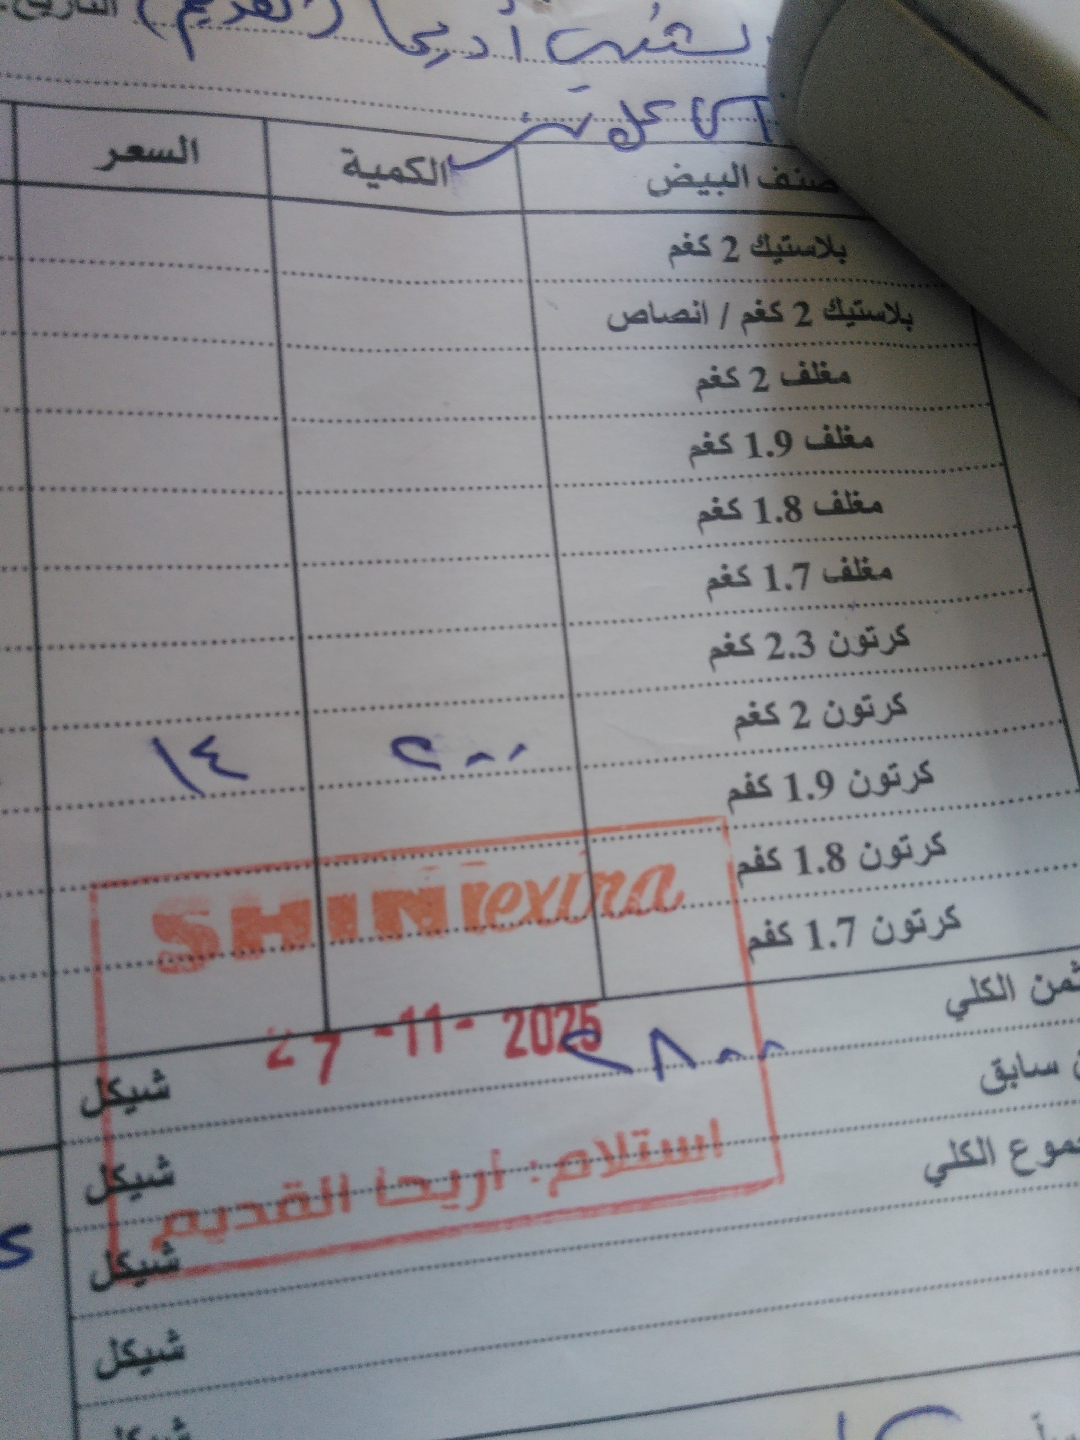 لشنب أريحا (القديم) التاريخ:
صنف البيض الكمية السعر
بلاستيك 2 كغم
بلاستيك 2 كغم / انصاص
مغلف 2 كغم
مغلف 1.9 كغم
مغلف 1.8 كغم
مغلف 1.7 كغم
كرتون 2.3 كغم
كرتون 2 كغم ٢٠٠ ١٤
كرتون 1.9 كفم
كرتون 1.8 كفم
كرتون 1.7 كفم
SHINI extra
27 -11- 2025
ثمن الكلي ٢٨٠٠ شيكل
سابق شيكل
استلام: أريحا القديم
موع الكلي شيكل
شيكل
شيكل